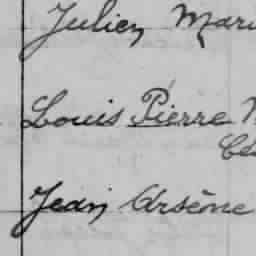 Julien Mari
Louis Pierre
Cé
Jean Arsène